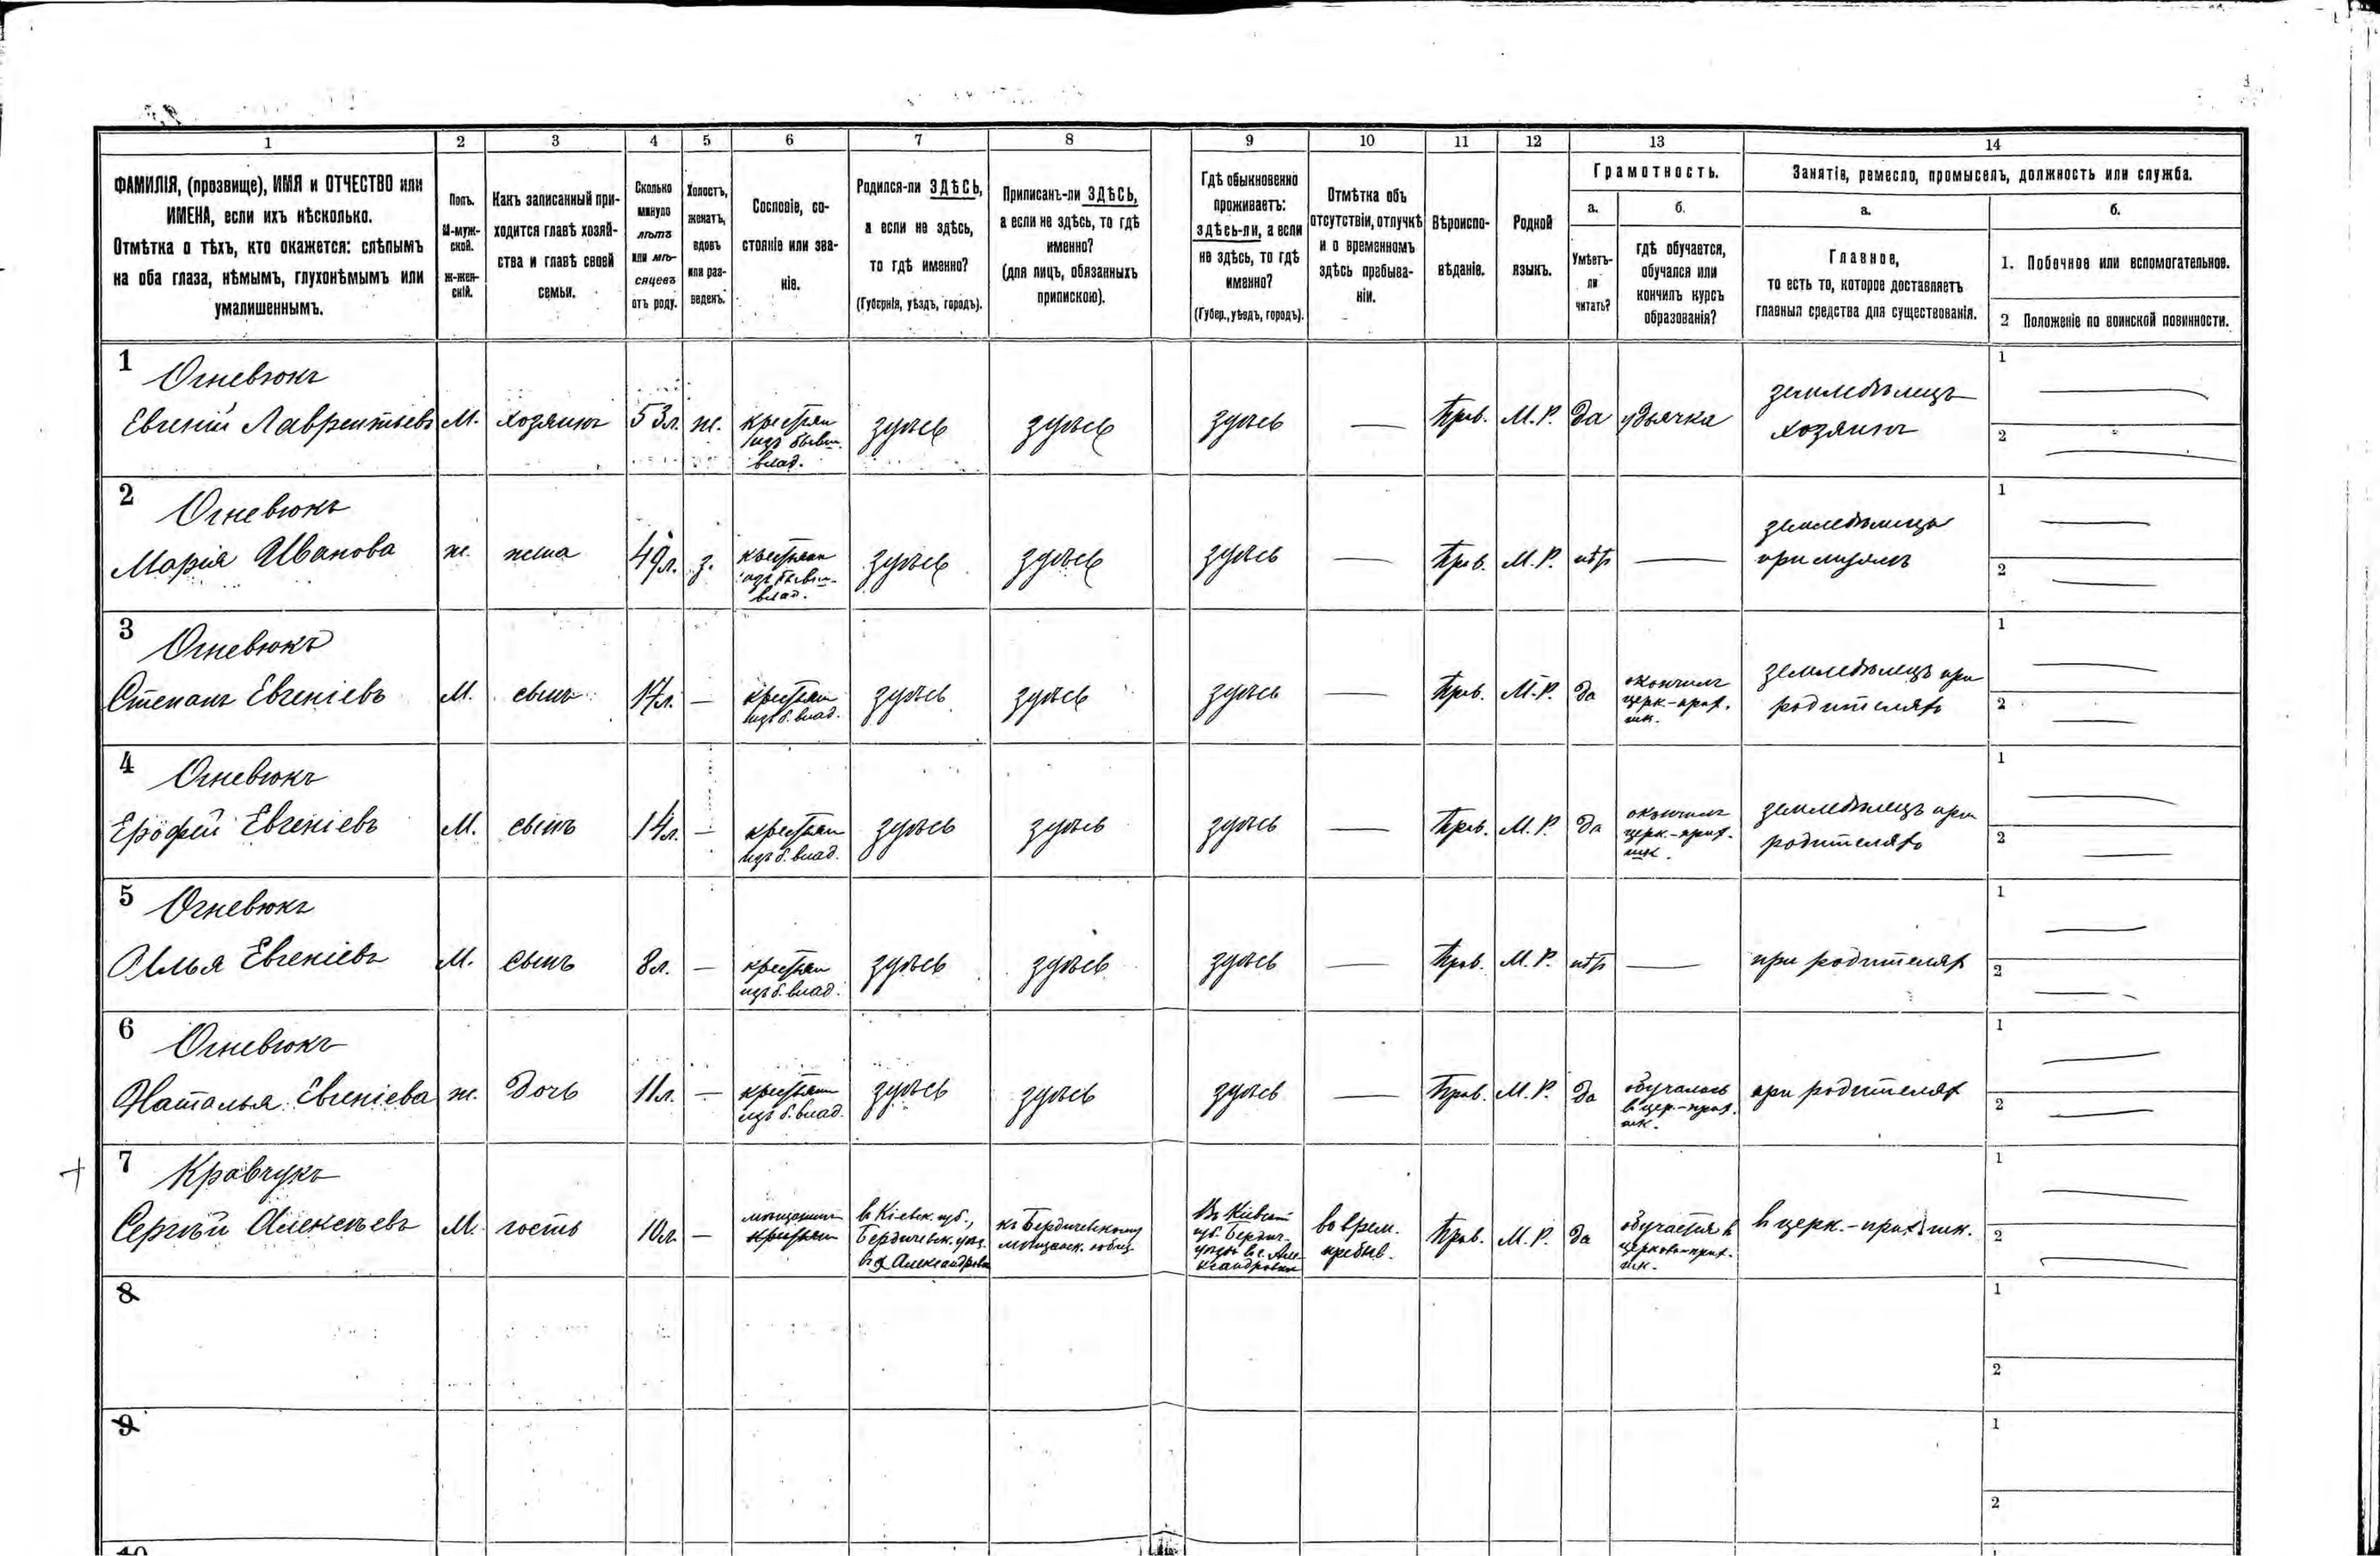 1 2 3 4 5 6 7 8 9 10 11 12 13 14
ФАМИЛІЯ, (прозвище), ИМЯ и ОТЧЕСТВО или
ИМЕНА, если ихъ нѣсколько.
Отмѣтка о тѣхъ, кто окажется: слѣпымъ
на оба глаза, нѣмымъ, глухонѣмымъ или
умалишеннымъ.
Полъ.
М-муж-
ской.
ж-жен-
скій.
Какъ записанный при-
ходится главѣ хозяй-
ства и главѣ своей
семьи.
Сколько
минуло
лѣтъ
или мѣ-
сяцевъ
отъ роду.
Холостъ,
женатъ,
вдовъ
или раз-
веденъ.
Сословіе, со-
стояніе или зва-
ніе.
Родился-ли ЗДѢСЬ,
а если не здѣсь,
то гдѣ именно?
(Губернія, уѣздъ, городъ).
Приписанъ-ли ЗДѢСЬ,
а если не здѣсь, то гдѣ
именно?
(для лицъ, обязанныхъ
припискою).
Гдѣ обыкновенно
проживаетъ:
здѣсь-ли, а если
не здѣсь, то гдѣ
именно?
(Губер., уѣздъ, городъ).
Отмѣтка объ
отсутствіи, отлучкѣ
и о временномъ
здѣсь пребыва-
ніи.
Вѣроиспо-
вѣданіе.
Родной
языкъ.
Грамотность.
а.
Умѣетъ-
ли
читать?
б.
гдѣ обучается,
обучался или
кончилъ курсъ
образованія?
Занятіе, ремесло, промыселъ, должность или служба.
а.
Главное,
то есть то, которое доставляетъ
главныя средства для существованія.
б.
1. Побочное или вспомогательное.
2 Положеніе по воинской повинности.
1 Огневюкъ
Евгеній Лаврентьевъ
М.
хозяинъ
53л.
ж.
крестьян
изъ бывш.
влад.
здѣсь
здѣсь
здѣсь
—
Прав.
М.Р.
да
у дьячка
земледѣлецъ
хозяинъ
1
2
2 Огневюкъ
Марія Иванова
ж.
жена
49л.
з.
крестьян
изъ бывш.
влад.
здѣсь
здѣсь
здѣсь
—
Прав.
М.Р.
нѣтъ
—
земледѣлица
при мужѣ
1
2
3 Огневюкъ
Степанъ Евгеніевъ
М.
сынъ
17л.
—
крестьян
изъ б. влад.
здѣсь
здѣсь
здѣсь
—
Прав.
М.Р.
да
окончилъ
церк.-прих.
шк.
земледѣлецъ при
родителяхъ
1
2
4 Огневюкъ
Ерофей Евгеніевъ
М.
сынъ
14л.
—
крестьян
изъ б. влад.
здѣсь
здѣсь
здѣсь
—
Прав.
М.Р.
да
окончилъ
церк.-прих.
шк.
земледѣлецъ при
родителяхъ
1
2
5 Огневюкъ
Илья Евгеніевъ
М.
сынъ
8л.
—
крестьян
изъ б. влад.
здѣсь
здѣсь
здѣсь
—
Прав.
М.Р.
нѣтъ
—
при родителях
1
2
6 Огневюкъ
Наталья Евгеніева
ж.
дочь
11л.
—
крестьян
изъ б. влад.
здѣсь
здѣсь
здѣсь
—
Прав.
М.Р.
да
обучалась
в цер.-прих.
шк.
при родителях
1
2
7 Кравчукъ
Сергѣй Алексѣевъ
М.
гость
10л.
—
мѣщанинъ
крестьян
в Кіевск. губ.,
Бердичевск. уѣз.
в с. Александровк
къ Бердичевскому
мѣщанск. общ.
Въ Кіевской
губ. Бердич.
уѣздѣ в с. Але-
ксандровкѣ
во врем.
пребыв.
Прав.
М.Р.
да
обучается в
церковно-прих.
шк.
в церк.-прих. шк.
1
2
8
1
2
9
1
2